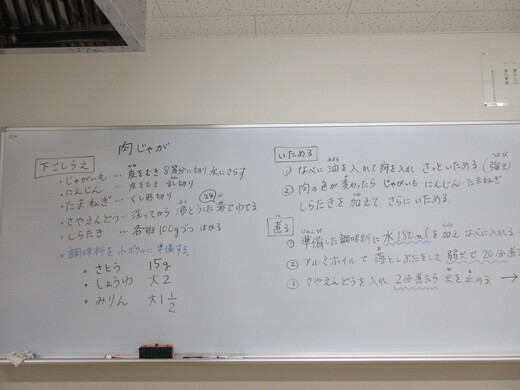 肉じゃが
下ごしらえ
・じゃがいも … 皮をむき 8等分に切り 水にさらす
・にんじん … 皮をむき 乱切り
・たまねぎ … くし形切り
・さやえんどう … 洗ってから 沸とうした湯でゆでる
・しらたき … 各班 100gづつ はかる
・調味料を小ボウルに準備する
・さとう 15g
・しょうゆ 大2
・みりん 大1 1/2
いためる
① なべに油を入れて肉を入れ さっといためる (強火)
② 肉の色が変わったら じゃがいも にんじん たまねぎ
しらたきを加えて さらにいためる
煮る
① 準備した調味料に水180mlを加え なべに入れる
② アルミホイルで落としぶたをして 弱火で20分煮
③ さやえんどうを入れ 2分煮たら 火を止める →